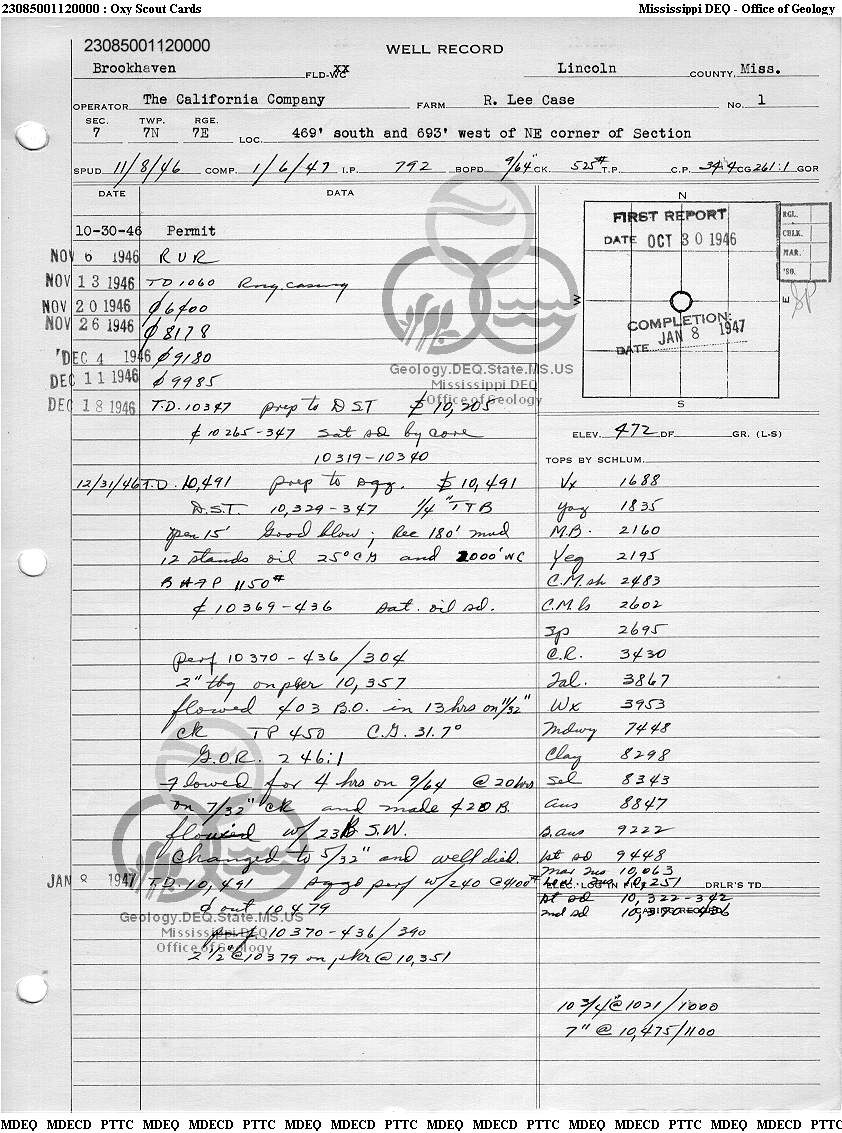 23085001120000 : Oxy Scout Cards Mississippi DEQ - Office of Geology
23085001120000
WELL RECORD
Brookhaven FLD-WC xx Lincoln COUNTY, Miss.
OPERATOR The California Company FARM R. Lee Case No. 1
SEC. TWP. RGE.
7 7N 7E LOC. 469' south and 693' west of NE corner of Section
SPUD 11/8/46 COMP. 1/6/47 I.P. 792 BOPD 9/64" CK. 525# T.P. C.P. 34.4 CG 261:1 GOR
DATE DATA
10-30-46 Permit
NOV 6 1946 RUR
NOV 13 1946 TD 1060 Rng. casing
NOV 20 1946 ₵ 6400
NOV 26 1946 ₵ 8178
DEC 4 1946 ₵ 9180
DEC 11 1946 ₵ 9985
DEC 18 1946 T.D. 10347 prep to DST 10,205
₵ 10265-347 sat sd by core
10319-10340
12/31/46 T.D. 10,491 prep to 10,491
D.S.T. 10,329-347 1/4" TTB
open 15' Good blow; Rec 180' mud
12 stands oil 25° CG and 2000' WC
BHFP 1150#
₵ 10369-436 sat. oil sd.
perf 10370-436/304
2" tbg on pker 10,357
flowed 403 B.O. in 13 hrs on 11/32"
ck TP 450 C.G. 31.7°
G.O.R. 246:1
Flowed for 4 hrs on 9/64 @ 20 hrs
on 7/32" ck and made 420 B.
flowed w/ 23 B.S.W.
Changed to 5/32" and well died.
JAN 8 1947 T.D. 10,491 sqzd perf w/240 @ 4100#
out 10479
perf 10370-436/390
2 1/2" @ 10379 on pkr @ 10,351
N
W
E
S
FIRST REPORT
DATE OCT 30 1946
COMPLETION:
DATE JAN 8 1947
RGL.
CHLK.
MAR.
'SO.
ELEV. 472 DF GR. (L-S)
TOPS BY SCHLUM.
Vx 1688
Yaz 1835
M.B. 2160
Yeg 2195
C.M. sh 2483
C.M. ls 2602
Zp 2695
C.R. 3430
Tal. 3867
Wx 3953
Mdwy 7448
Clay 8298
Sel 8343
Aus 8847
B. aus 9222
1st sd 9448
Mar Tus 10,063
10,251
ELEC. LOG IN FILE DRLR'S TD
1st sd 10,322-342
2nd sd 10,370-436
CASING RECORD
10 3/4" @ 1021/1000
7" @ 10,475/1100
Geology.DEQ.State.MS.US
Mississippi DEQ
Office of Geology
Geology.DEQ.State.MS.US
Mississippi DEQ
Office of Geology
MDEQ MDECD PTTC MDEQ MDECD PTTC MDEQ MDECD PTTC MDEQ MDECD PTTC MDEQ MDECD PTTC MDEQ MDECD PTTC